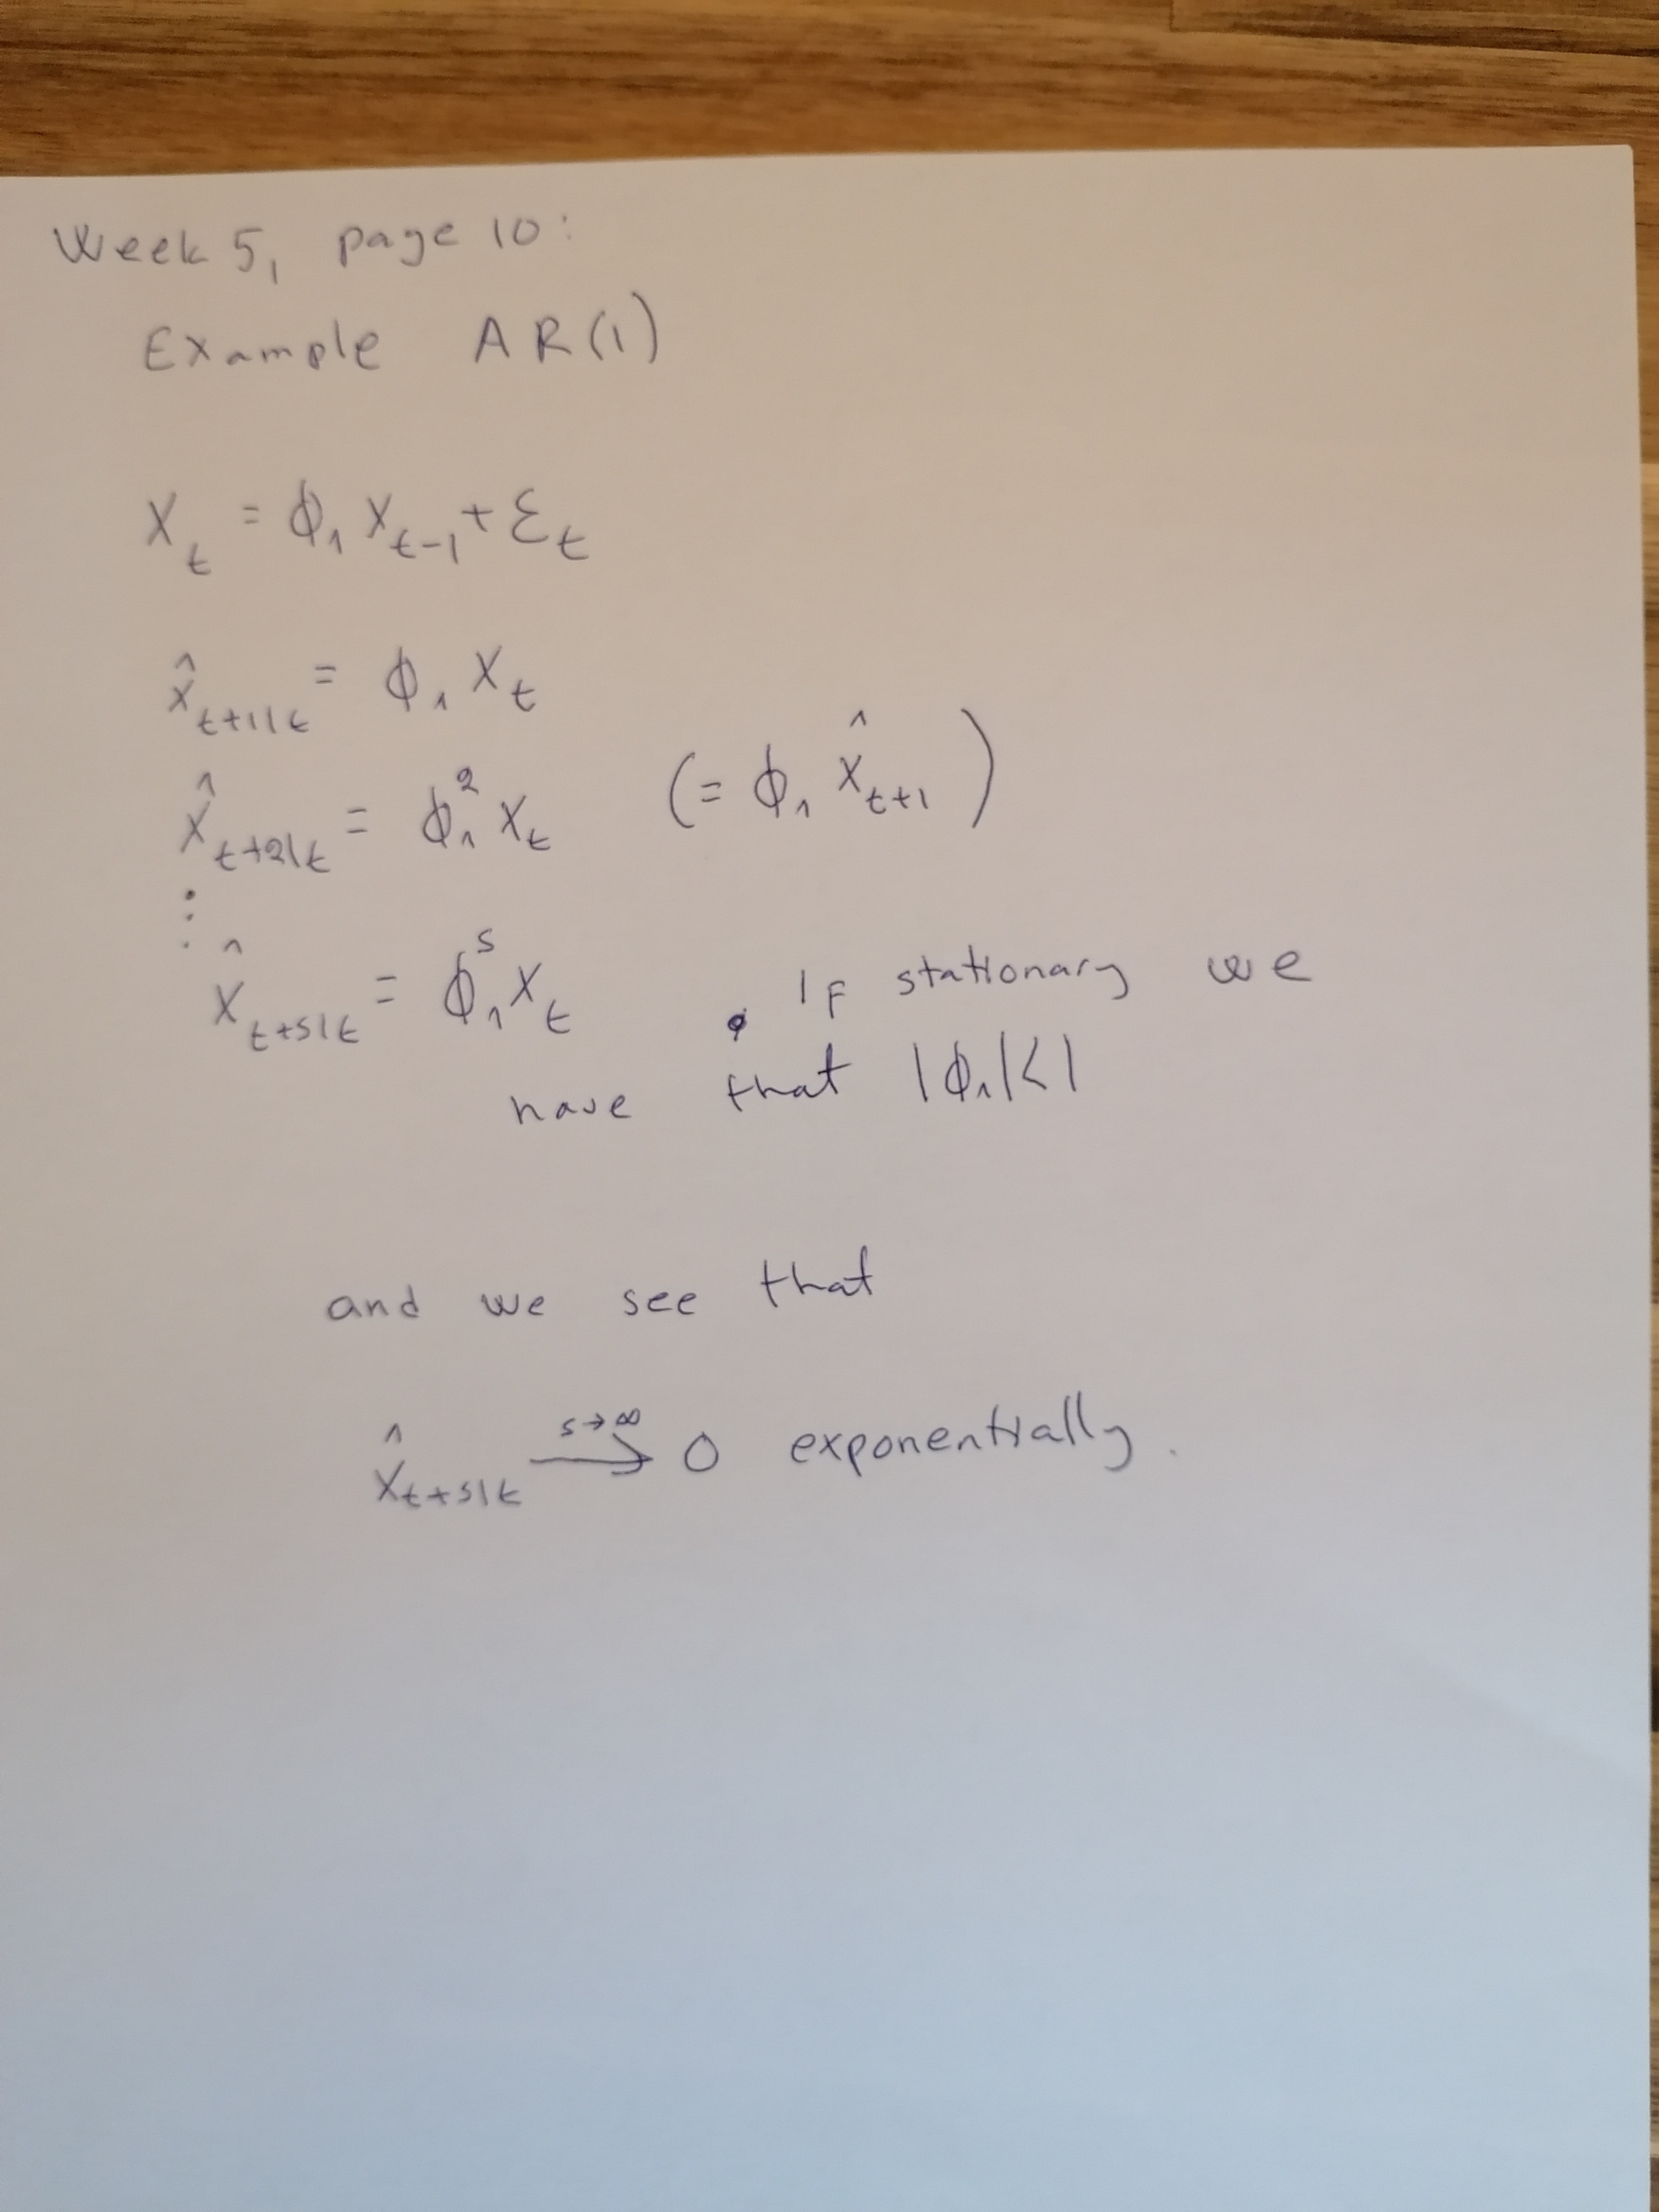 Week 5, page 10:
Example AR(1)
X_t = ϕ_1 X_{t-1} + ε_t
x̂_{t+1|t} = ϕ_1 X_t
X̂_{t+2|t} = ϕ_1^2 X_t (= ϕ_1 X̂_{t+1})
⋮
X̂_{t+s|t} = ϕ_1^s X_t . If stationary we
have that |ϕ_1|<1
and we see that
X̂_{t+s|t} \xrightarrow{s→∞} 0 exponentially.